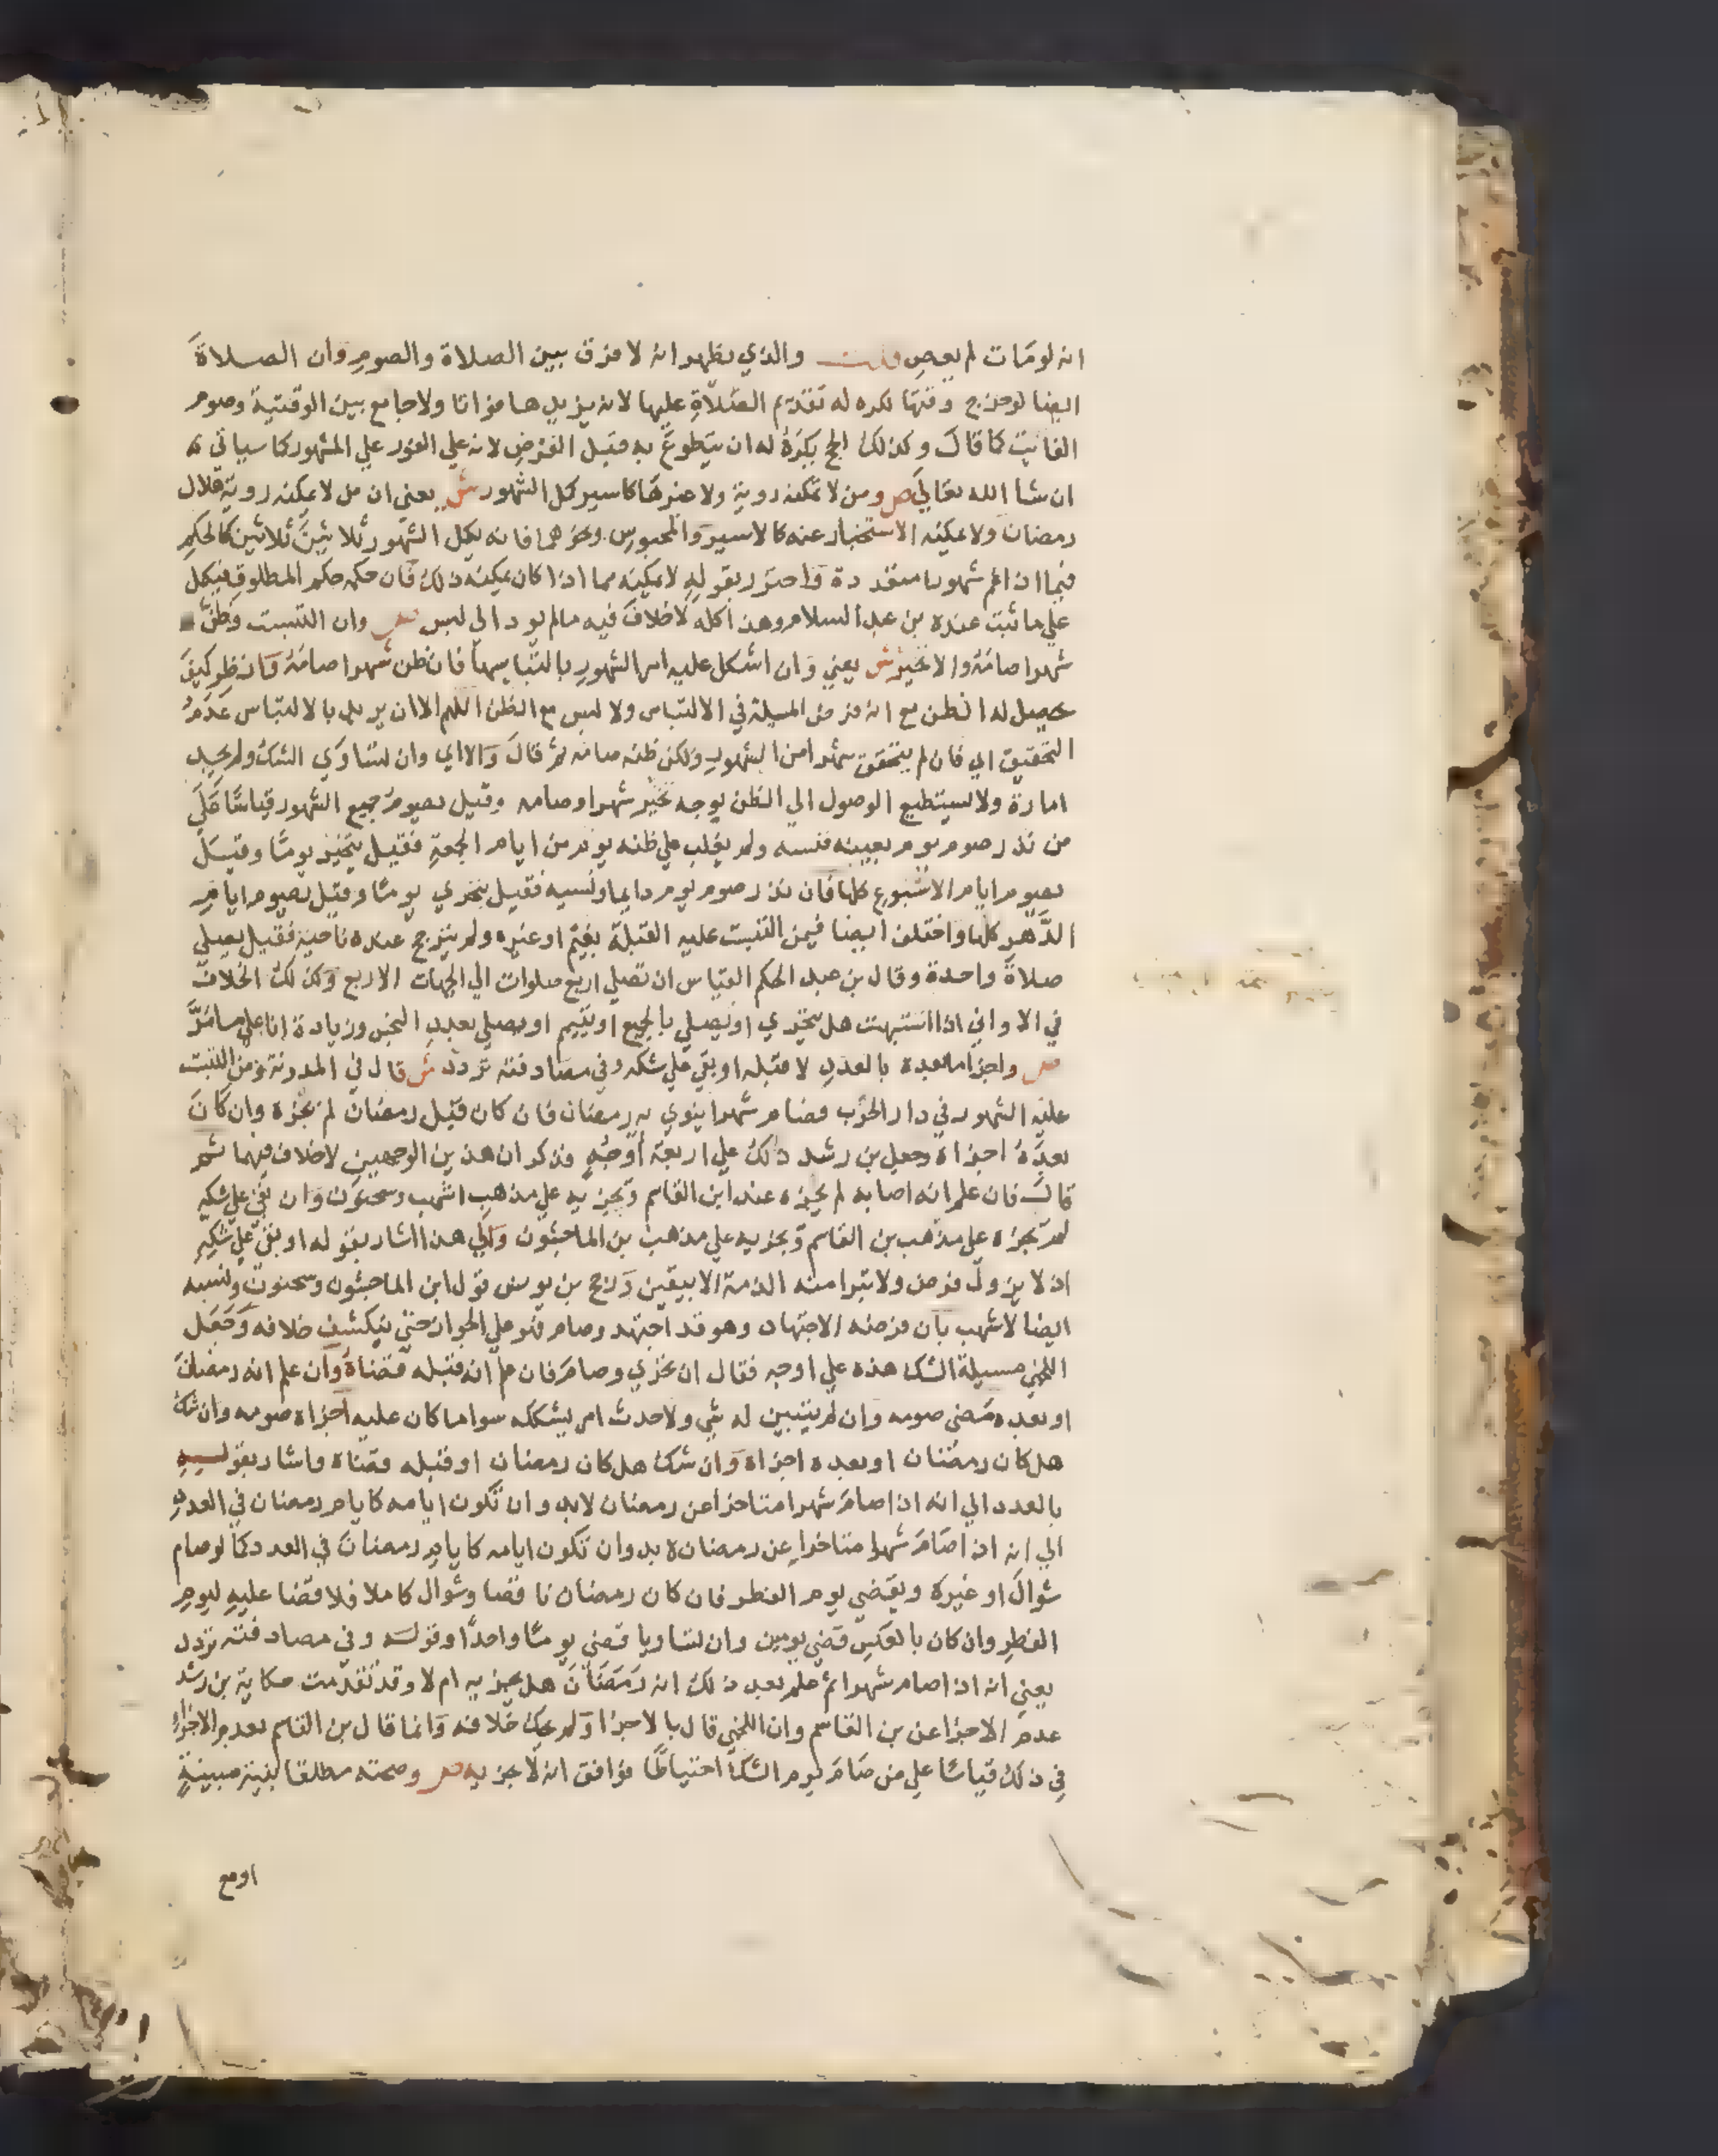 انه لو مات لم يعص قلت والذي يظهر انه لا فرق بين الصلاة والصوم وان الصلاة
ايضا لو خرج وقتها نكره له تقديم الصلاة عليها لانه يزيدها فواتا ولا جامع بين الوقتية وصوم
الفايت كما قال وكذلك الحج يكره له ان يتطوع به قبل الفرض لانه علي الفور علي المشهور كما سياتي
ان شا الله تعالي ص ومن لا تمكنه روية ولا غيرها كاسير كمل الشهور ش يعني ان من لا يمكنه روية هلال
رمضان ولا يمكنه الاستخبار عنه كالاسير والمحبوس ونحوهما فانه يكمل الشهور ثلاثين ثلاثين كالحكم
فيما اذا غم شهورا متعددة واحترز بقوله لا يمكنه مما اذا كان يمكنه ذلك فان حكمه حكم المطلوق فيكمل
علي ما ثبت عنده بن عبد السلام وهذا كله لا خلاف فيه ما لم يود الي لبس ص وان التبست وظن
شهرا صامه والا تخير ش يعني وان اشكل عليه امر الشهور بالتباسها فان ظن شهرا صامه وانظر كيف
يحصل له الظن مع انه فرض المسيلة في الالتباس ولا لبس مع الظن اللهم الا ان يريد بالالتباس عدم
التحقيق اي فان لم يتحقق شهرا من الشهور ولكن ظنه صامه ثم قال والا اي وان تساوي الشك ولم يجد
امارة ولا يستطيع الوصول الي الظن بوجه تخير شهرا وصامه وقيل يصوم جميع الشهور قياسا علي
من نذر صوم يوم بعينه فنسيه ولم يغلب علي ظنه يوم من ايام الجمعة فقيل يتخير يوما وقيل
يصوم ايام الاسبوع كلها فان نذر صوم يوم دايما ونسيه فقيل يتحري يوما وقيل يصوم ايام
الدهر كلها واختلف ايضا فيمن التبست عليه القبلة بغيم او غيره ولم يترجح عنده ناحية فقيل يصلي
صلاة واحدة وقال بن عبد الحكم القياس ان تصلي اربع صلوات الي الجهات الاربع وكذلك الخلاف
في الاواني اذا اشتبهت هل يتحري او يصلي بالجميع او يتيمم او يصلي بعدد النجس وزيادة انا علي ما مر
ص واجزا ما بعده بالعدد لا قبله او بقي علي شكه وفي مصادفته تردد ش قال في المدونة ومن التبست
عليه الشهور في دار الحرب فصام شهرا ينوي به رمضان فان كان قبل رمضان لم يجزه وان كان
بعده اجزاه وجعل بن رشد ذلك علي اربعة اوجه فذكر ان هذين الوجهين لا خلاف فيهما ثم
قال فان علم انه اصابه لم يجزه عند ابن القاسم ويجزيه علي مذهب اشهب وسحنون وان بقي علي شكه
لم يجزه علي مذهب بن القاسم ويجزيه علي مذهب بن الماجشون والي هذا اشار بقوله او بقي علي شكه
اذ لا يزول فرض ولا تبرا منه الذمة الا بيقين ورجح بن يونس قول ابن الماجشون وسحنون ونسبه
ايضا لاشهب بان فرضه الاجتهاد وهو قد اجتهد وصام فهو علي الجواز حتي ينكشف خلافه وجعل
اللخمي مسيلة الشك هذه علي اوجه فقال ان تحري وصام فان علم انه قبله قضاه وان علم انه رمضان
او بعده مضي صومه وان لم يتبين له شي ولا حدث امر يشككه سوا ما كان عليه اجزاه صومه وان شك
هل كان رمضان او بعده اجزاه وان شك هل كان رمضان او قبله قضاه واشار بقوله
بالعدد الي انه اذا صام شهرا متاخرا عن رمضان لا بد وان تكون ايامه كايام رمضان في العدد
الي انه اذا صام شهرا متاخرا عن رمضان لا بد وان تكون ايامه كايام رمضان في العدد كما لو صام
شوال او غيره ويقضي يوم الفطر فان كان رمضان ناقصا وشوال كاملا فلا قضا عليه ليوم
الفطر وان كان بالعكس قضي يومين وان تساويا قضي يوما واحدا وقوله وفي مصادفته تردد
يعني انه اذا صام شهرا ثم علم بعد ذلك انه رمضان هل يجزيه ام لا وقد تقدمت حكاية بن رشد
عدم الاجزا عن بن القاسم وان اللخمي قال بالاجزا ولم يحك خلافه وانما قال بن القاسم بعدم الاجزا
في ذلك قياسا علي من صام يوم الشك احتياطا فوافق انه لا يجزيه ص وصحته مطلقا بنية مبيتة
او مع